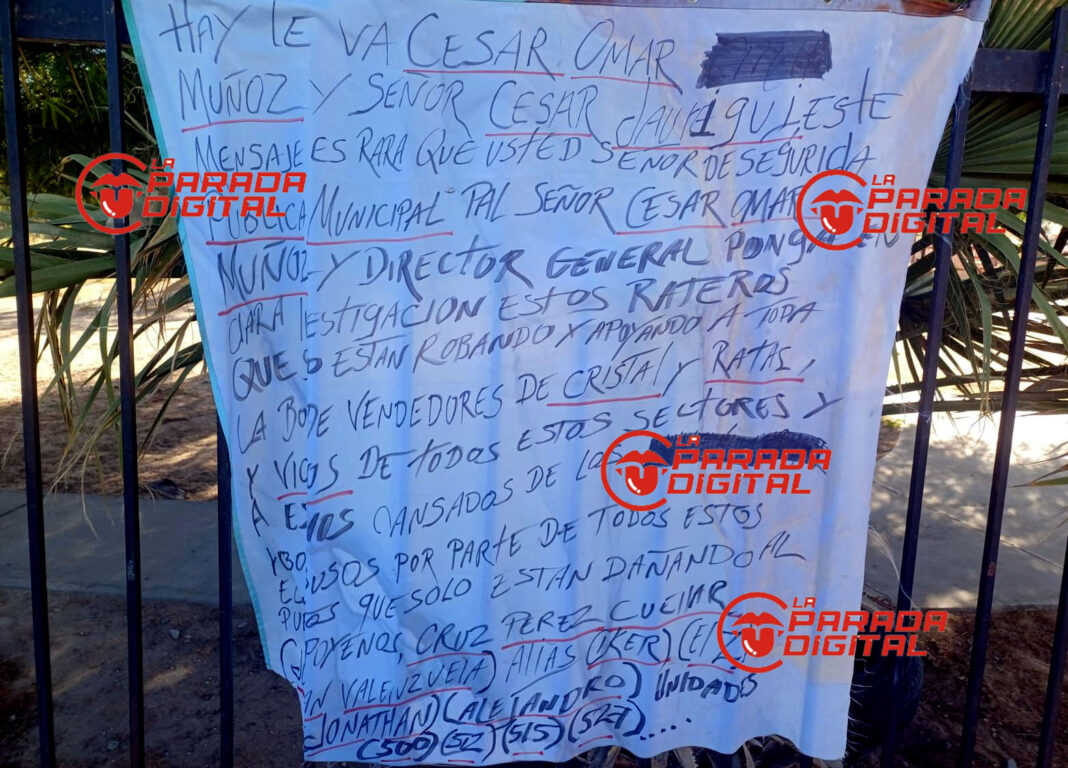 HAY LE VA CESAR OMAR
MUÑOZ Y SEÑOR CESAR ESTE
MENSAJE ES PARA QUE USTED SEÑOR DE SEGURIDA
PUBLICA MUNICIPAL PAL SEÑOR CESAR OMAR
MUÑOZ Y DIRECTOR GENERAL PONGA EN
CLARA ESTIGACION ESTOS RATEROS
QUE SO ESTAN ROBANDO Y APOYANDO A TODA
LA BODE VENDEDORES DE CRISTAL Y RATAS,
Y VICOS DE TODOS ESTOS SECTORES Y
A CANSADOS DE LOS
POR PARTE DE TODOS ESTOS
QUE SOLO ESTAN DAÑANDO AL
APOYENOS, CRUZ PEREZ CUEIAR
VALENZUELA) ALIAS (IKER) (EL
JONATHAN) (ALEJANDRO) UNIDADES
(500) (512) (515) (527) ....
LA PARADA DIGITAL
LA PARADA DIGITAL
LA PARADA DIGITAL
LA PARADA DIGITAL